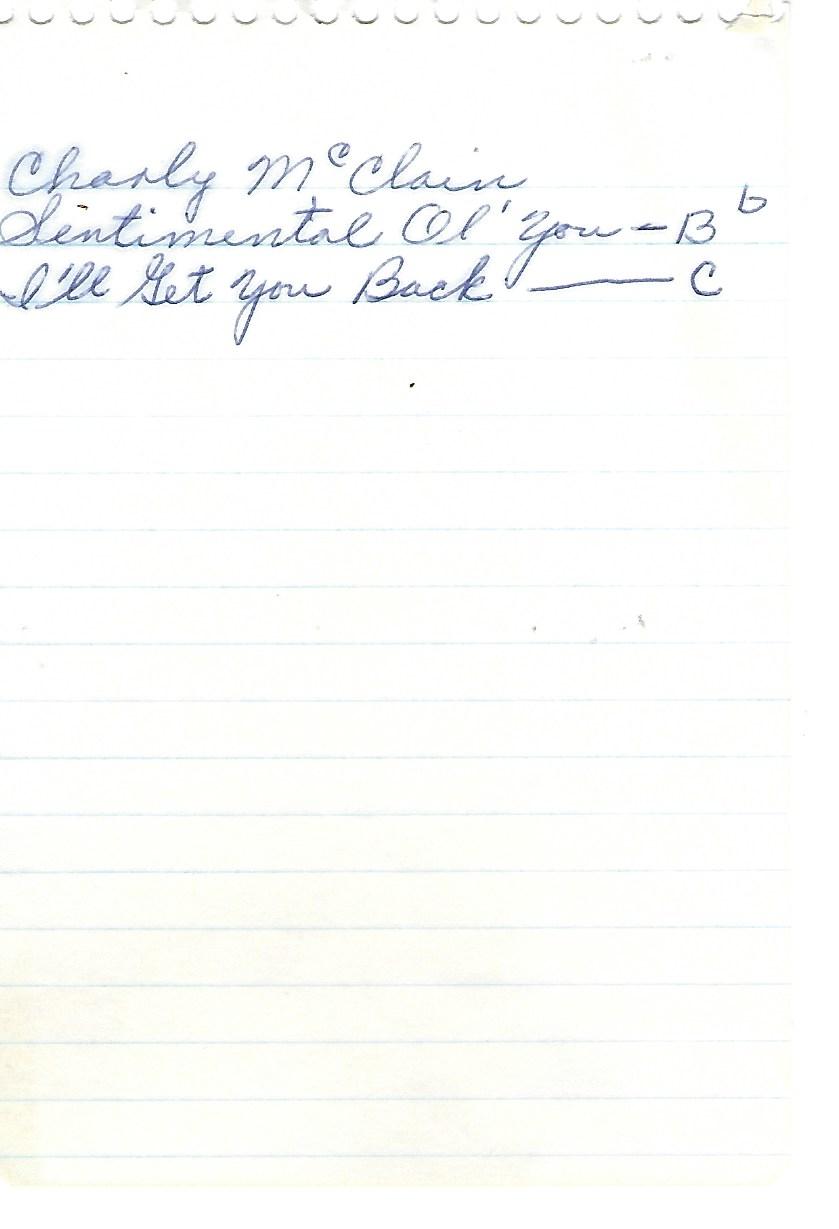 Charly McClain
Sentimental Ol' You - Bb
I'll Get You Back — C